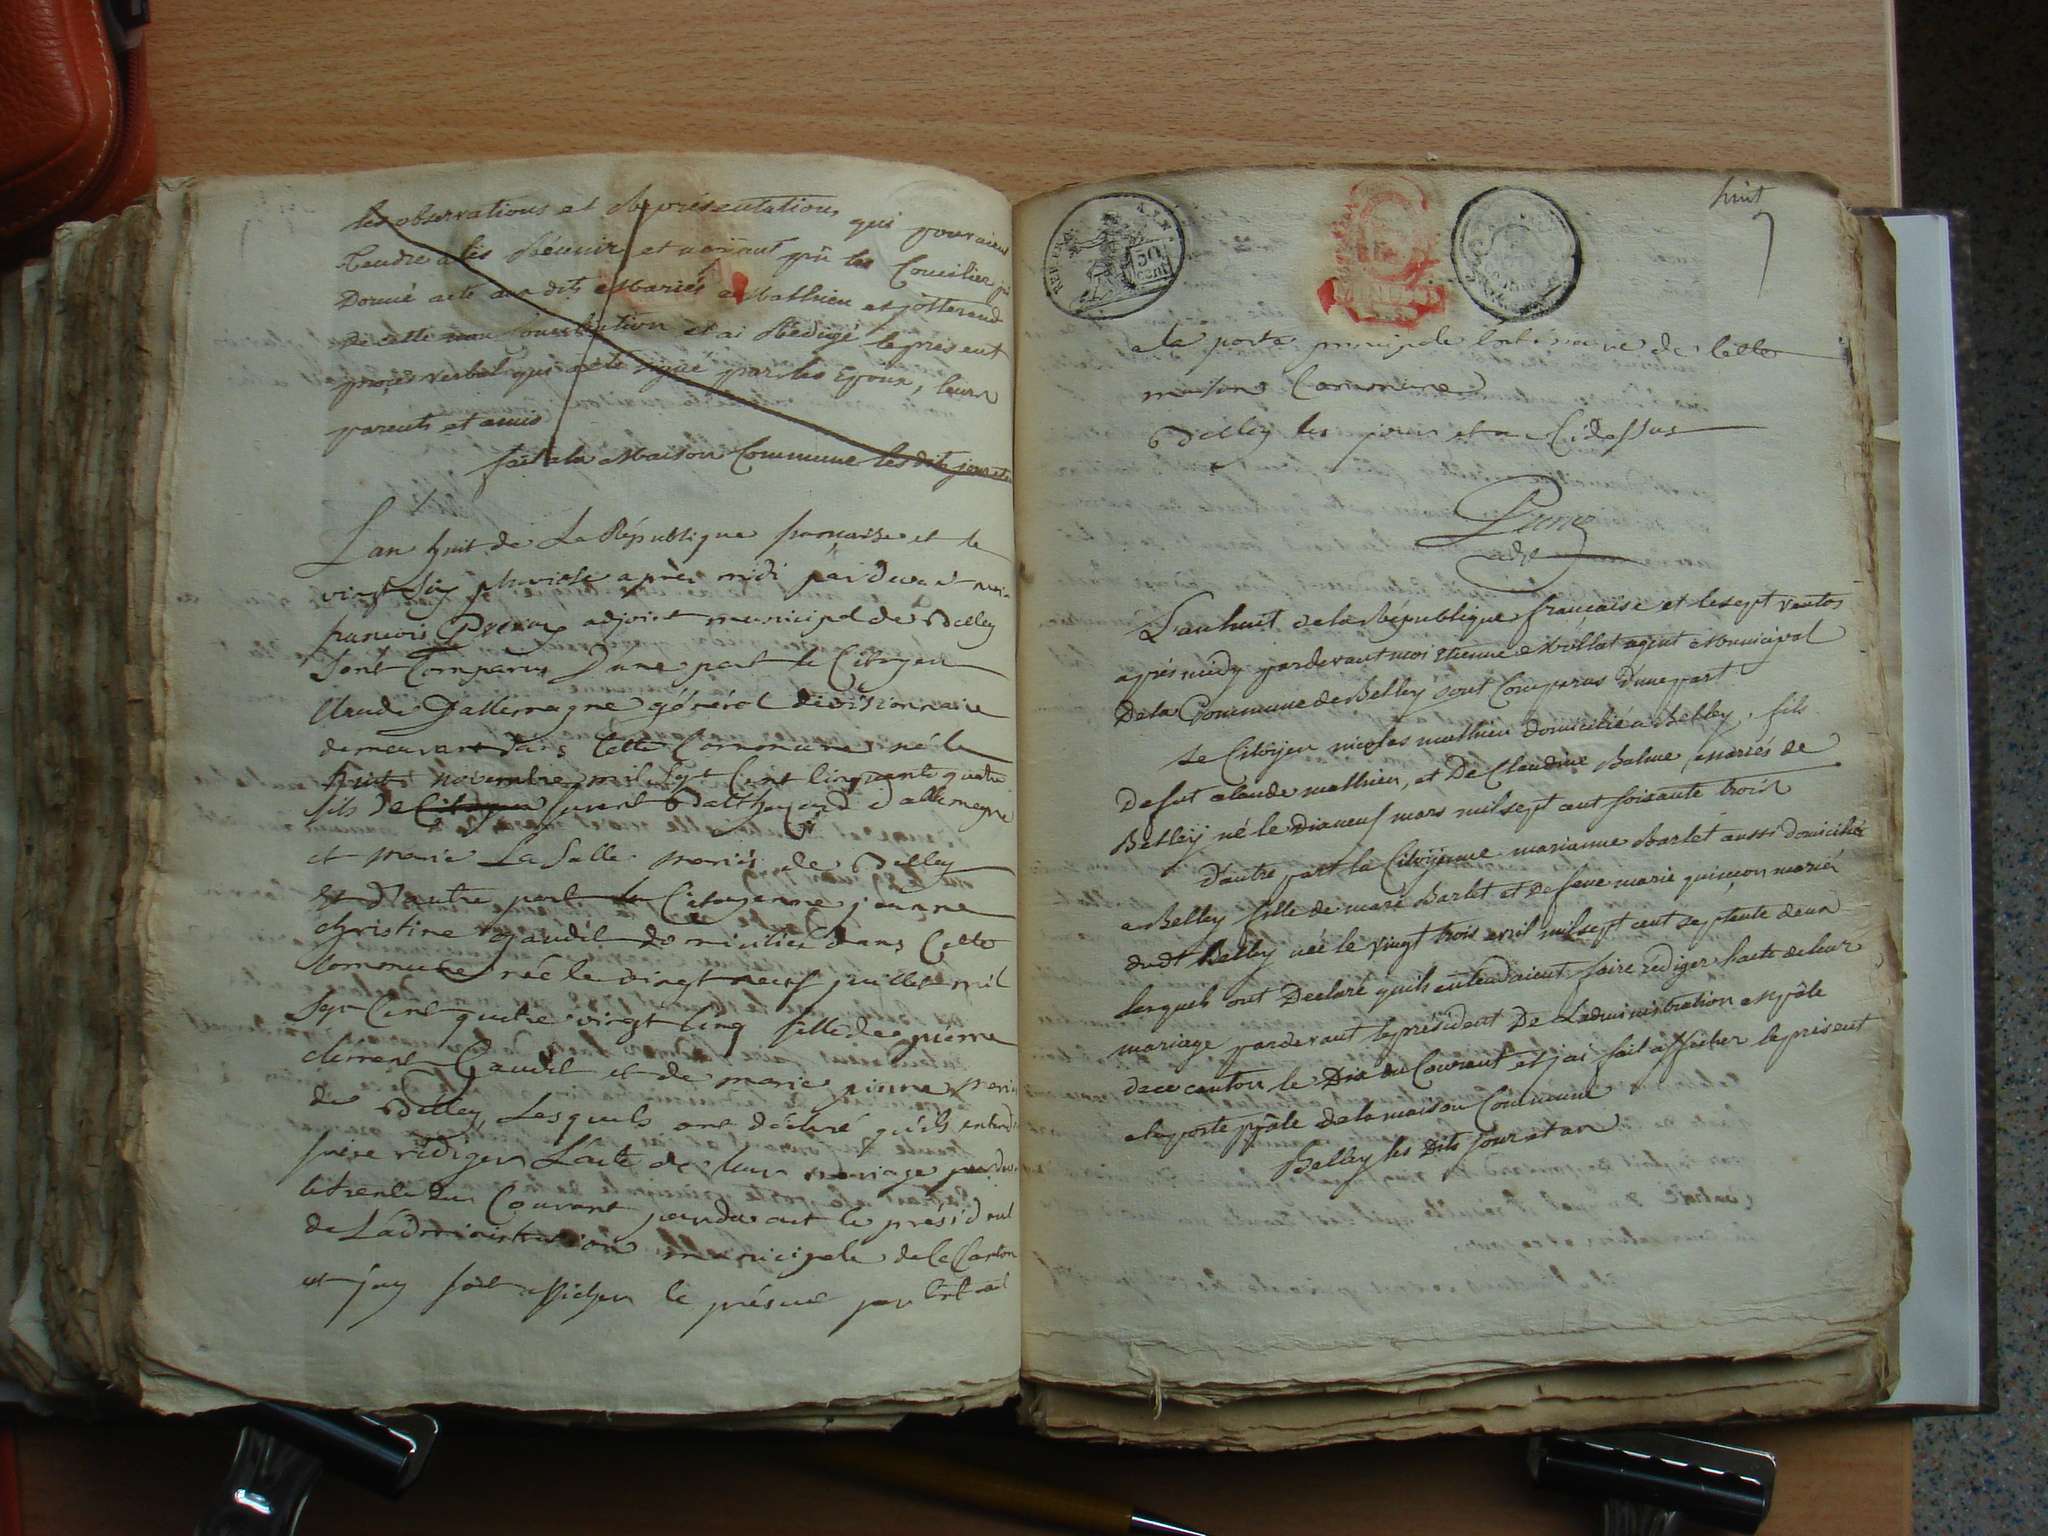 les observations et Représentations qui pouraient
tendre a les Réunir et n'ayant pû les Concilier j'ai
Donné acte aux dits Mariés Mathieu et
de cette non Conciliation et ai Rédigé le present
procés verbal qui a eté signé par les Epoux, leurs
parents et amis
fait a la Maison Commune les dits jour et
L'an huit de La République francaise et le
vingt six pluviose après midi par devant moi
francois adjoint municipal de Belley
sont Comparus D'une part le Citoyen
Claude Dallemagne général divisionnaire
demeurant dans Cette Commune né le
huit novembre mil sept Cent Cinquante quatre
fils de Citoyen Balthazard dallemagne
et marie La Salle mariés de Belley
Et D'autre part la Citoyenne jeanne
christine Gaudet domiciliée dans Cette
Commune née le vingt neuf juillet mil
sept Cent quatre vingt Cinq fille de pierre
clément Gaudet et de marie
de Belley, Lesquels ont déclaré qu'ils
faire rédiger L'acte de leur mariage
le trente du Courant pardevant le président
de L'administration municipale de Ce Canton
et j'ay fait afficher le présent par Extrait
huit
7
REP. FRA.
50
cent.
a la porte principale Extérieure de Cette
maison Commune
Belley les jour et an Cidessus
adjt
L'an huit de la République française et le sept ventos
après midy pardevant moi Etienne Mollat agent Municipal
De la Commune de Belley sont Comparus d'une part
Le Citoyen nicolas mathieu domicilié a Belley, fils
De fut claude mathieu, et De Claudine Balme, mariés de
Belley né le Dix neuf mars mil sept cent soisante trois
d'autre part la Citoyenne marianne Barlet aussi domiciliée
a Belley fille de marc Barlet et de feue marie quinçon mariés
dudt Belley née le vingt trois avril mil sept cent septente deux
lesquels ont Declaré quils entendaient faire rédiger l'acte de leur
mariage pardevant le président De L'administration mpâle
de ce canton le Dix du Courant et j'ai fait afficher le présent
a la porte ppâle de la maison Commune
Belley les Dits jour et an